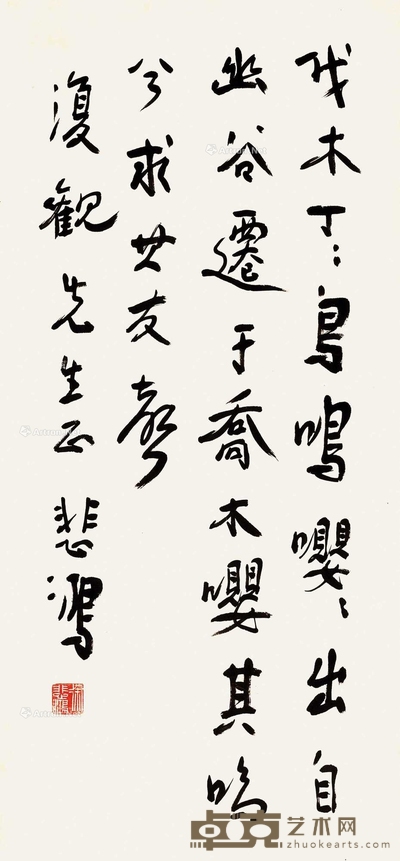 伐木丁〻鳥鳴嚶〻出自
幽谷遷于喬木嚶其鳴
兮求其友聲
復觀先生正 悲鴻
卓克艺术网
zhuokearts.com